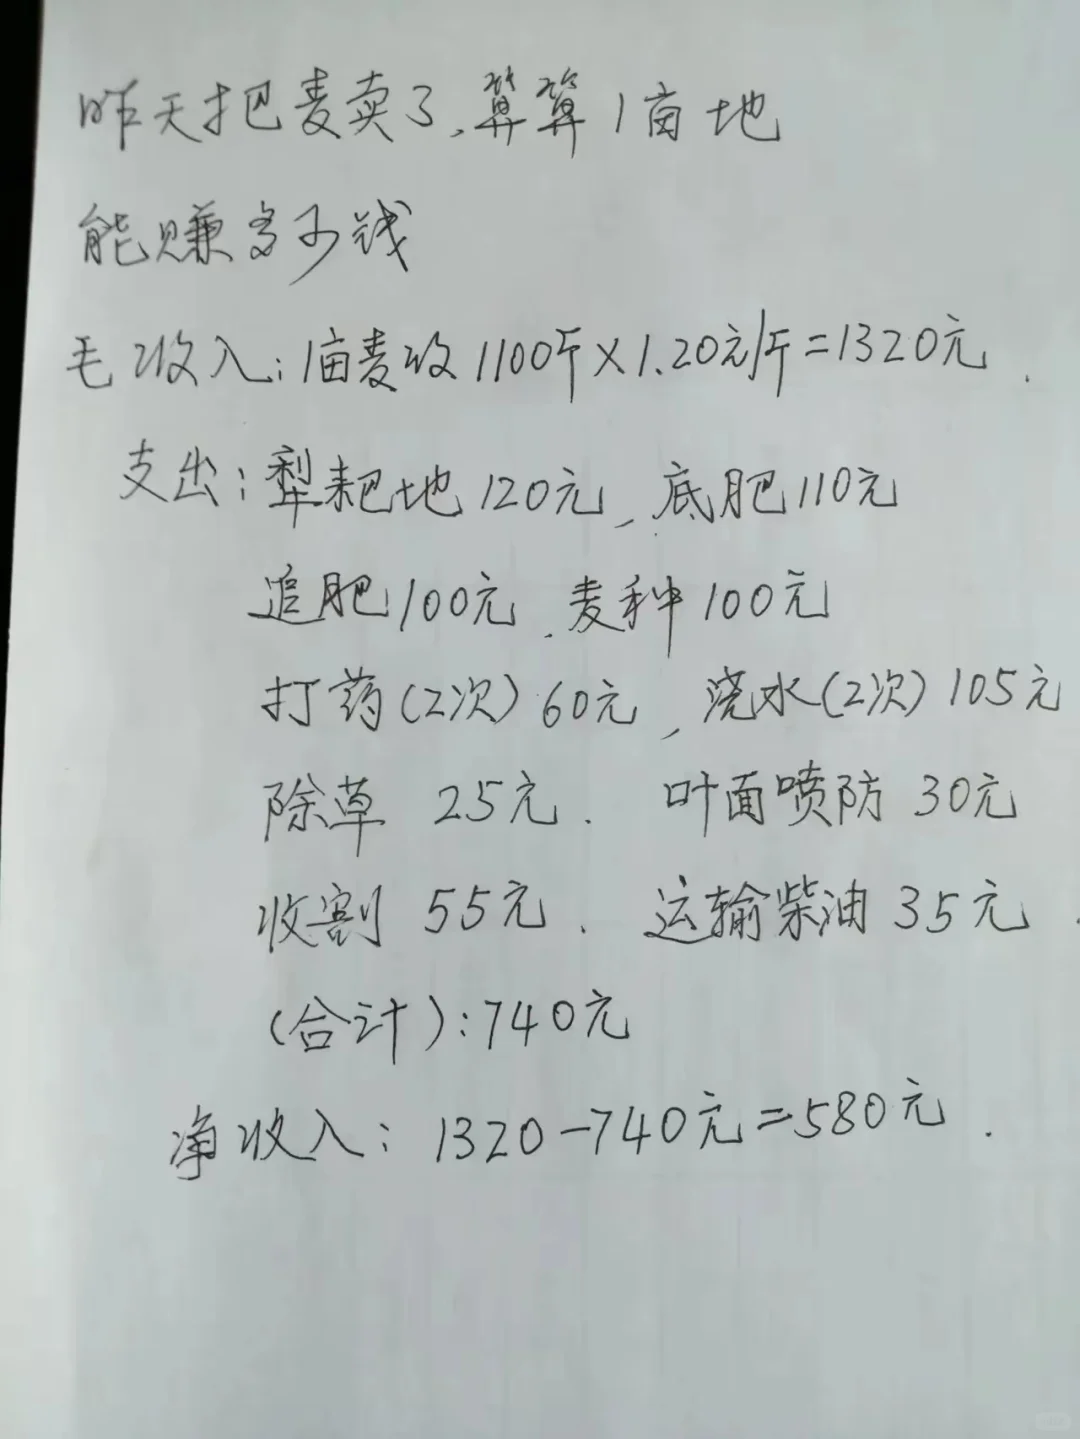 昨天把麦卖了,算算1亩地
能赚多少钱
毛收入:1亩麦收1100斤×1.20元/斤=1320元.
支出:犁耙地120元、底肥110元
追肥100元、麦种100元
打药(2次)60元、浇水(2次)105元
除草 25元. 叶面喷防 30元
收割 55元. 运输柴油 35元.
(合计):740元
净收入: 1320-740元=580元.